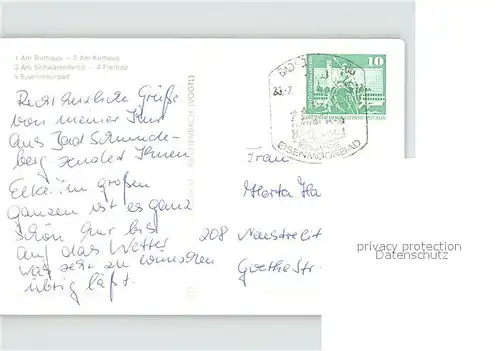 1 Am Rathaus - 2 Am Kurhaus
3 Am Schwanenteich - 4 Freibad
5 Eisenmoorbad
10
EISENMOORBAD
Recht herzliche Grüße
von meiner Kur
aus Bad Schmiede-
berg sendet Ihnen
Elke. im großen
ganzen ist es ganz
schön nur bis
auf das Wetter
was sehr zu wünschen
übrig läßt.
Frau
Herta Ha
208 Neustrelit
Goethestr.
privacy protection
Datenschutz